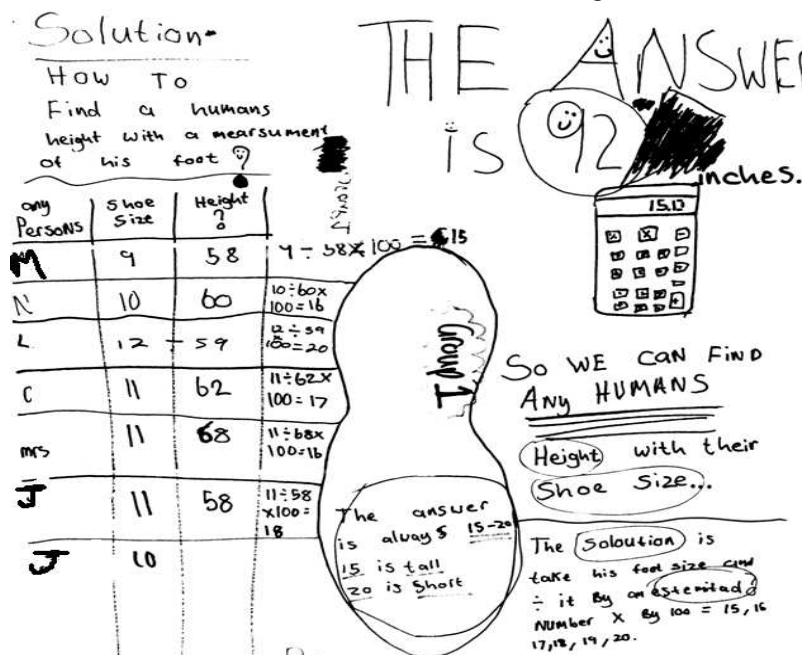 Solution-
HOW TO
Find a humans
height with a mearsument
of his foot ?
THE ANSWER
is 92
inches.
15.13
any Persons | Shoe Size | Height ?
M | 9 | 58 | 9 ÷ 58 X 100 = 15
N | 10 | 60 | 10÷60x 100=16
L | 12 | 59 | 12÷59 100=20
C | 11 | 62 | 11÷62x 100=17
mrs | 11 | 68 | 11÷68x 100=16
J | 11 | 58 | 11÷58 x100= 18
J | 10
Group 1
The answer
is always 15-20
15 is tall
20 is Short
SO WE CAN FIND
Any HUMANS
Height with their
Shoe Size...
The Soloution is
take his foot size and
÷ it By an estemitad
NUMBER X By 100 = 15, 16
17,18, 19, 20.